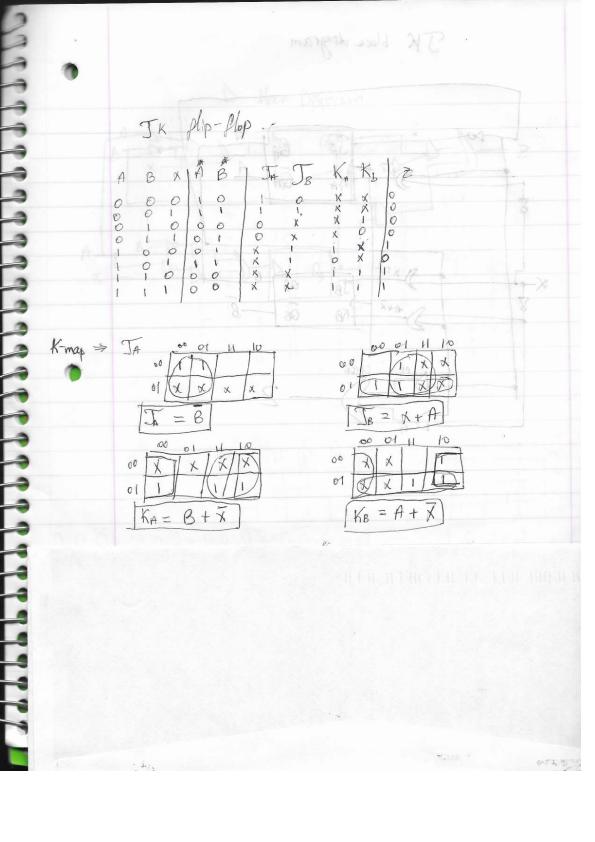 JK flip-flop :-
A B X A* B* JA JB KA Kb Z
0 0 0 1 0 1 0 X X 0
0 0 1 1 1 1 1 X X 0
0 1 0 0 0 0 X X 1 0
0 1 1 0 1 0 X X 0 0
1 0 0 0 1 X 1 1 X 1
1 0 1 1 1 X 1 0 X 0
1 1 0 0 0 X X 1 1 1
1 1 1 0 0 X X 1 1 1
K-map ⇒ JA
00 01 11 10
00 1 1
01 X X X X
JA = B̅
00 01 11 10
00 1 X X
01 1 1 X X
JB = X + A
00 01 11 10
00 X X X X
01 1 1 1
KA = B + X̅
00 01 11 10
00 X X 1
01 X X 1 1
KB = A + X̅